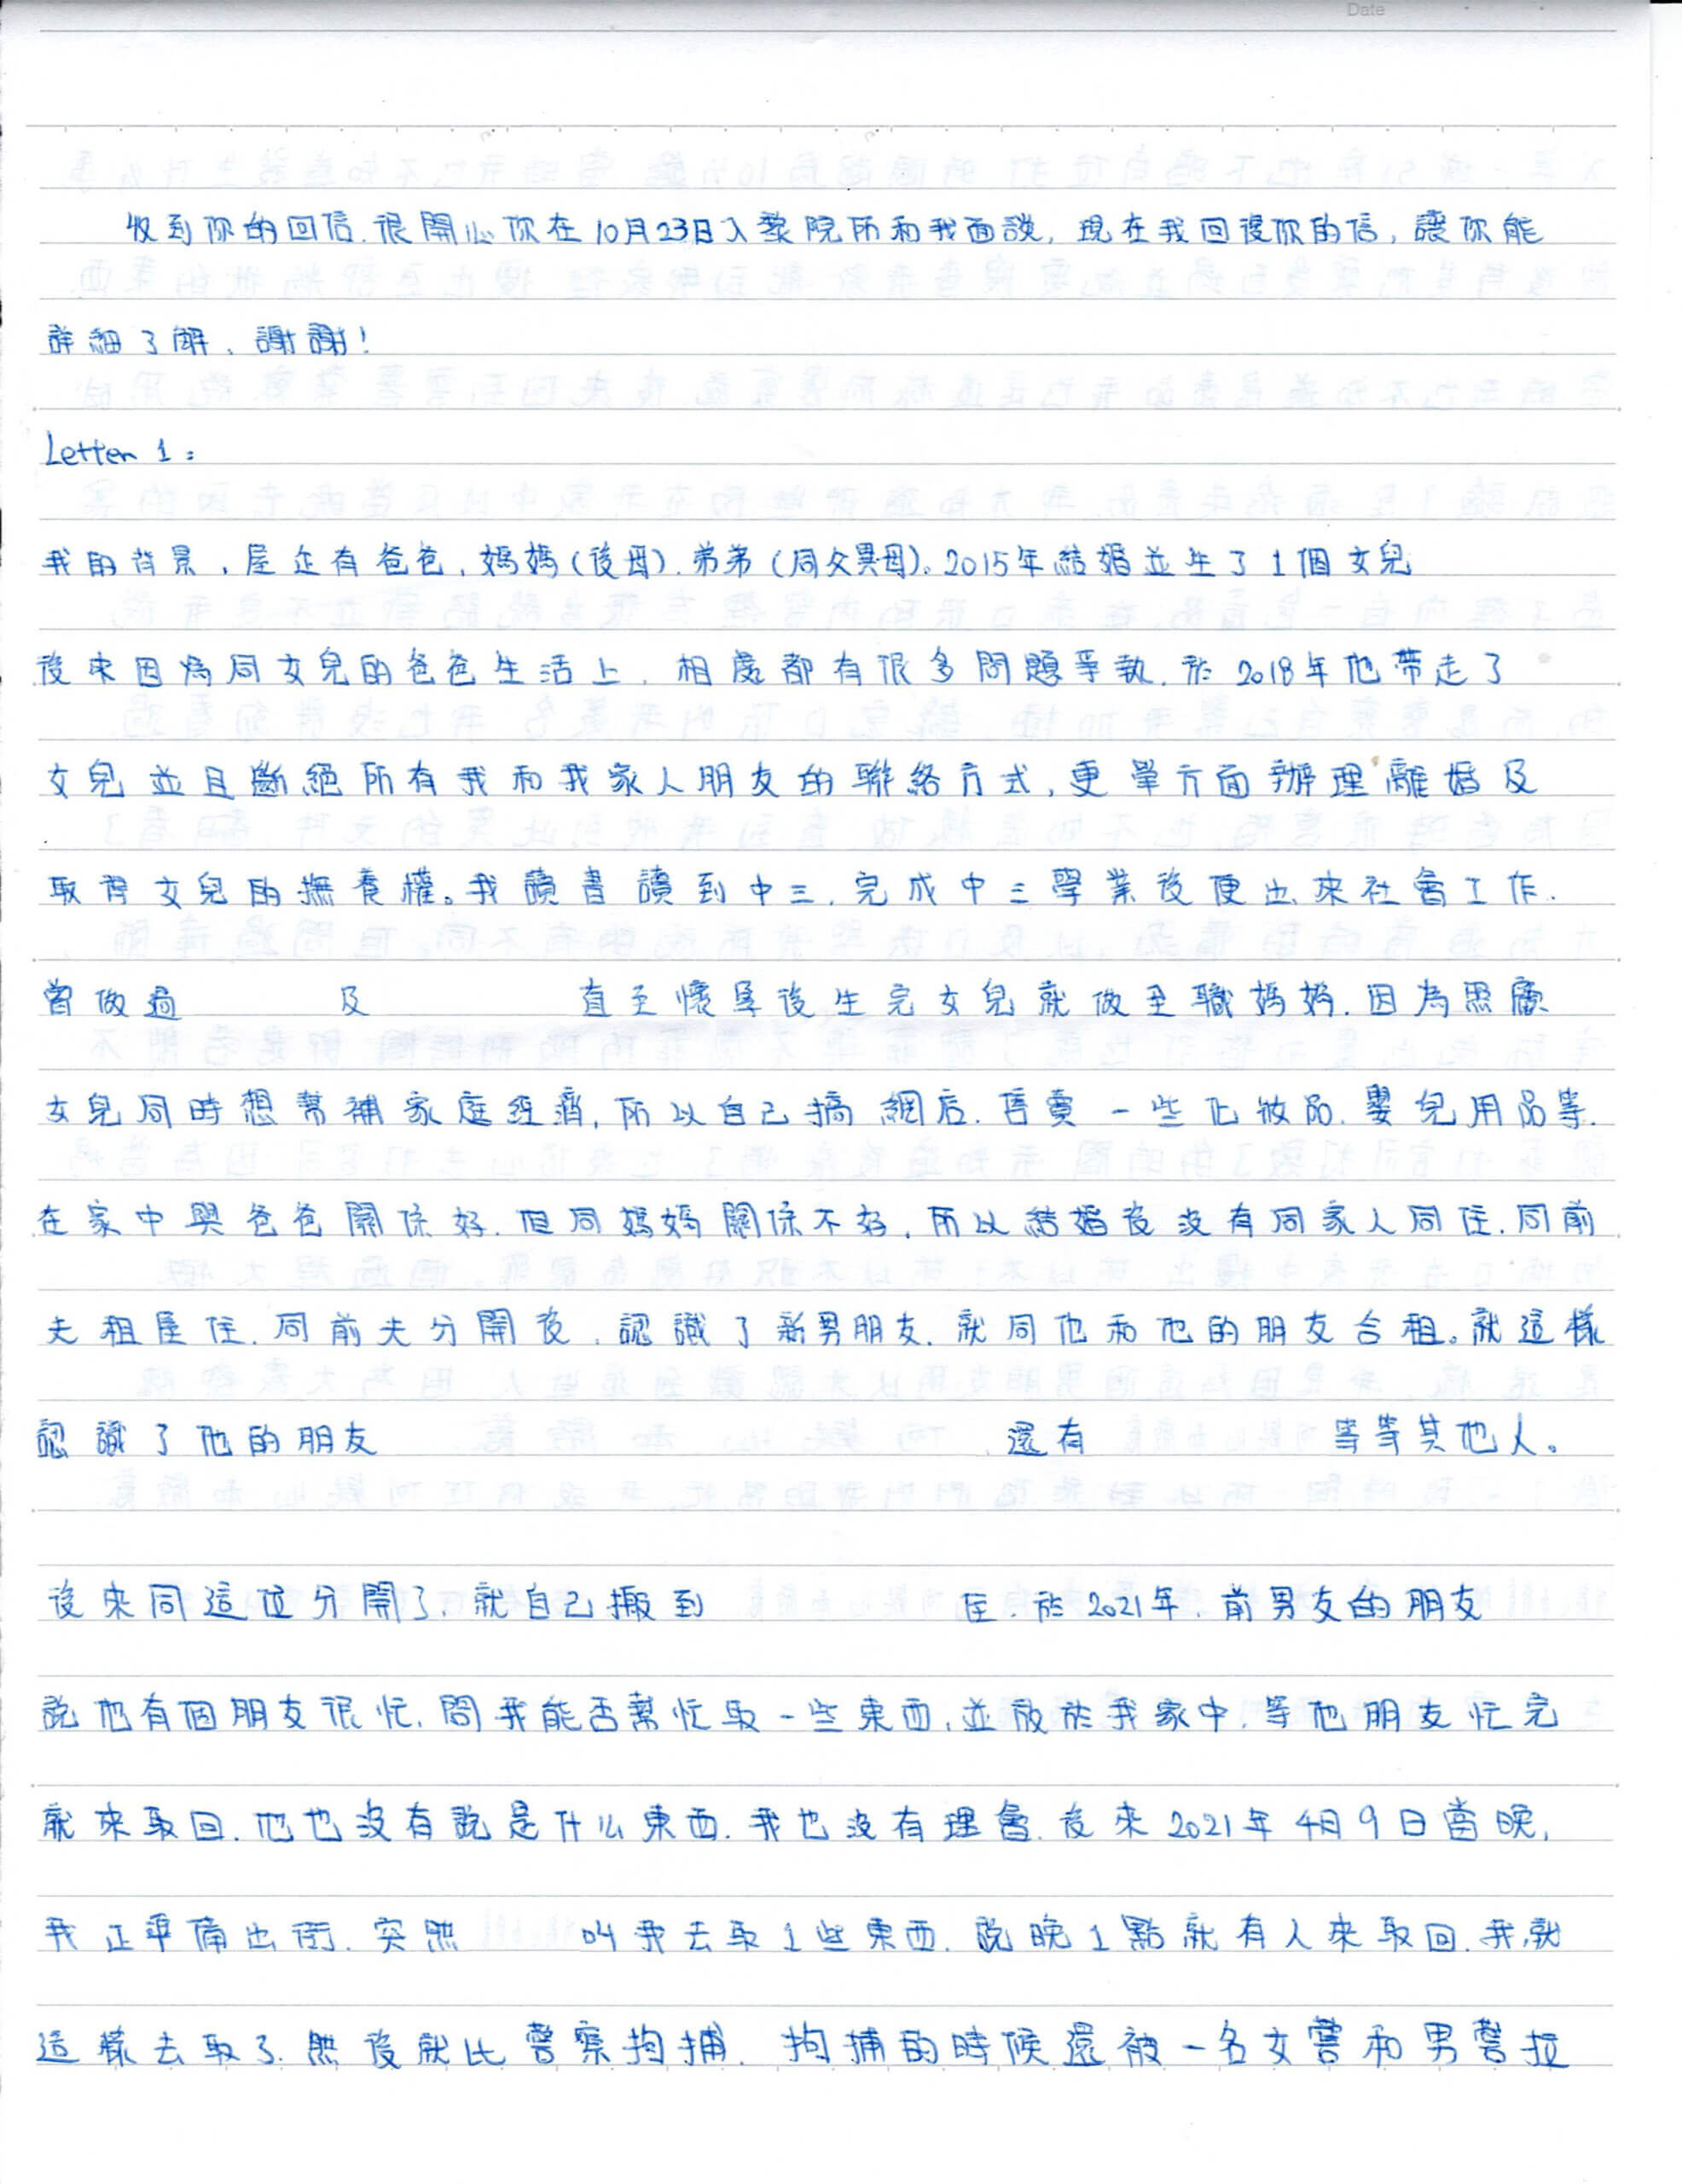 Date
收到你的回信.很開心你在10月23日入黎院所和我面談,現在我回復你的信,讓你能
詳細了解、謝謝!
Letter 1:
我的背景,屋企有爸爸,媽媽(後母).弟弟(同父異母)。2015年結婚並生了1個女兒
後來因為同女兒的爸爸生活上.相處都有很多問題爭執.於2018年他帶走了
女兒並且斷絕所有我和我家人朋友的聯絡方式,更單方面辦理離婚及
取得女兒的撫養權。我讀書讀到中三.完成中三學業後便出來社會工作.
曾做過 及 直至懷孕後生完女兒就做全職媽媽.因為照顧
女兒同時想幫補家庭經濟,所以自己搞網店.售賣一些化妝品.嬰兒用品等.
在家中與爸爸關係好.但同媽媽關係不好.所以結婚後沒有同家人同住.同前
夫租屋住.同前夫分開後.認識了新男朋友.就同他和他的朋友合租。就這樣
認識了他的朋友 .還有 等等其他人。
後來同這位分開了.就自己搬到 住.於2021年.前男友的朋友
說他有個朋友很忙.問我能否幫忙取一些東西.並放於我家中.等他朋友忙完
就來取回.他也沒有說是什么東西.我也沒有理會.後來2021年4月9日當晚,
我正準備出街.突然 叫我去取1些東西.說晚1點就有人來取回.我就
這樣去取了.然後就比警察拘捕.拘捕的時候還被一名女警和男警拉